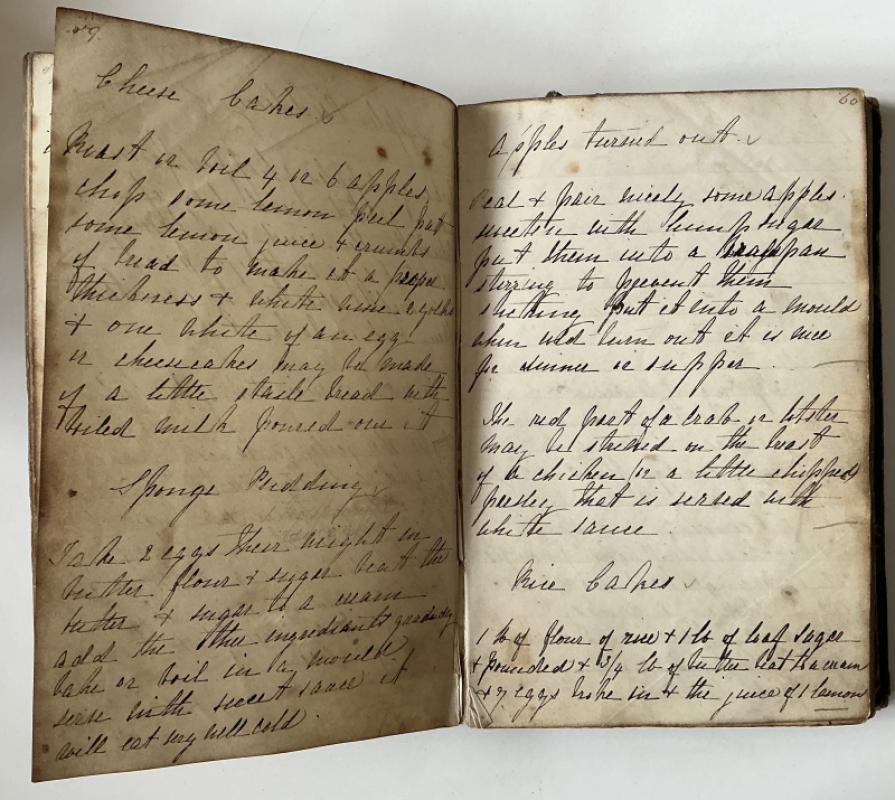 59.
Cheese Cakes
Roast or boil 4 or 6 apples
chop some lemon peel put
some lemon juice & crumbs
of bread to make it a proper
thickness & white wine 2 yolks
& one white of an egg
or cheesecakes may be made
of a little stale bread with
boiled milk poured over it
Sponge Pudding
Take 2 eggs their weight in
butter flour & sugger beat the
butter & sugar to a cream
add the other ingrediants gradualy
bake or boil in a mould
serve with sweet sauce it
will eat very well cold.
60
Apples turned out.
& pair nicely some apples.
sweeten with lump sugar
put them into a pan
stirring to prevent them
put it into a mould
when cold turn out it is nice
for dinner or supper.
The red part of a crab or lobster
may be on the breast
of a chicken or a little chopped
parsley that is served with
white sauce
Rice Cakes
1 lb of flour of rice & 1 lb of loaf sugar
& pounded & 3/4 lb of butter beat to a cream
& 7 eggs broke in & the juice of 1 lemon